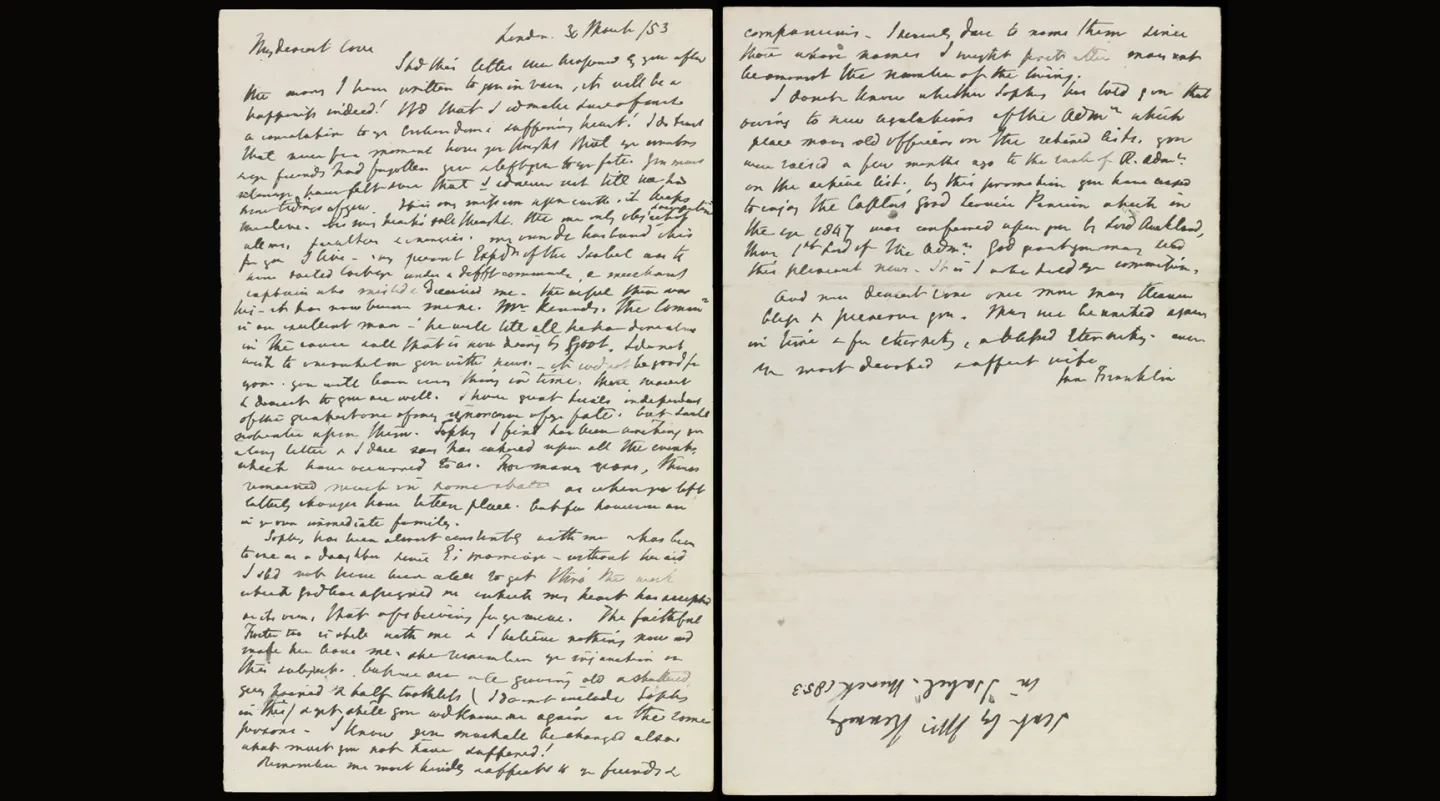 London. 30 March /53
My dearest love
Shd this letter ever be opened by you after
the many I have written to you in vain, it will be a
happiness indeed! Wd that I cd make sure of such
a consolation to yr enduring & suffering heart! I do trust
that never for a moment have you thought that yr
& yr friends had forgotten you & left you to yr fate. You must
always have felt sure that I cd never rest till we had
some tidings of you. It is my mission upon earth, it keeps
me alive. It is my heart's sole thought, the one only object of
all my faculties & energies. my own dr husband it is
for you I live - my present Expdn of the Isabel was to
have sailed last year under a difft command, a merchant
captain who misled & deceived me. the vessel then was
his - it has now become mine. Mr Kennedy, the Commr
is an excellent man - he will tell all he has done
in the cause & all that is now doing by Govt. I do not
wish to overwhelm you with news. - it wd not be good for
you. you will learn every thing in time. Those nearest
& dearest to you are well. I have great trials independent
of the greatest one of my ignorance of yr fate. but I will
not enter upon them. Sophy I find has been writing you
a long letter & I dare say has entered upon all the events
which have occurred to us. For many years, things
remained much in some state as when you left
latterly changes have taken place. but few however are
in yr own immediate family.
Sophy has been almost constantly with me & has been
to me as a daughter since E's marriage - without her aid
I shd not have been able to get thro' the work
which God has assigned me & which my heart has accepted
as its own, that of striving for yr rescue. The faithful
Foster too is still with me & I believe nothing now wd
make her leave me. she remembers yr injunction on
this subject. but we are all growing old & shattered,
grey haired & half toothless (I do not include Sophy
in this) & yet still you wd know us again as the same
persons - I know you must all be changed also &
what must you not have suffered!
Remember me most kindly & affectly to yr friends &
companions - I scarcely dare to name them since
those whose names I might first utter may not
be amongst the number of the living.
I don't know whether Sophy has told you that
owing to new regulations of the Admy which
place many old officers on the retired lists. you
were raised a few months ago to the rank of R. Adml
on the active list. by this promotion you have ceased
to enjoy the Captns' good service Pension which in
the yr 1847 was conferred upon you by Lord Auckland,
then 1st Lord of the Admy God grant you may read
this pleasant news. It is I who hold yr commission.
And now dearest love once more may Heaven
bless & preserve you. May we be united again
in time & for eternity, a blessed Eternity. ever
yr most devoted & affect wife
Jane Franklin
Sent by Mr Kennedy
in "Isabel" March 1853